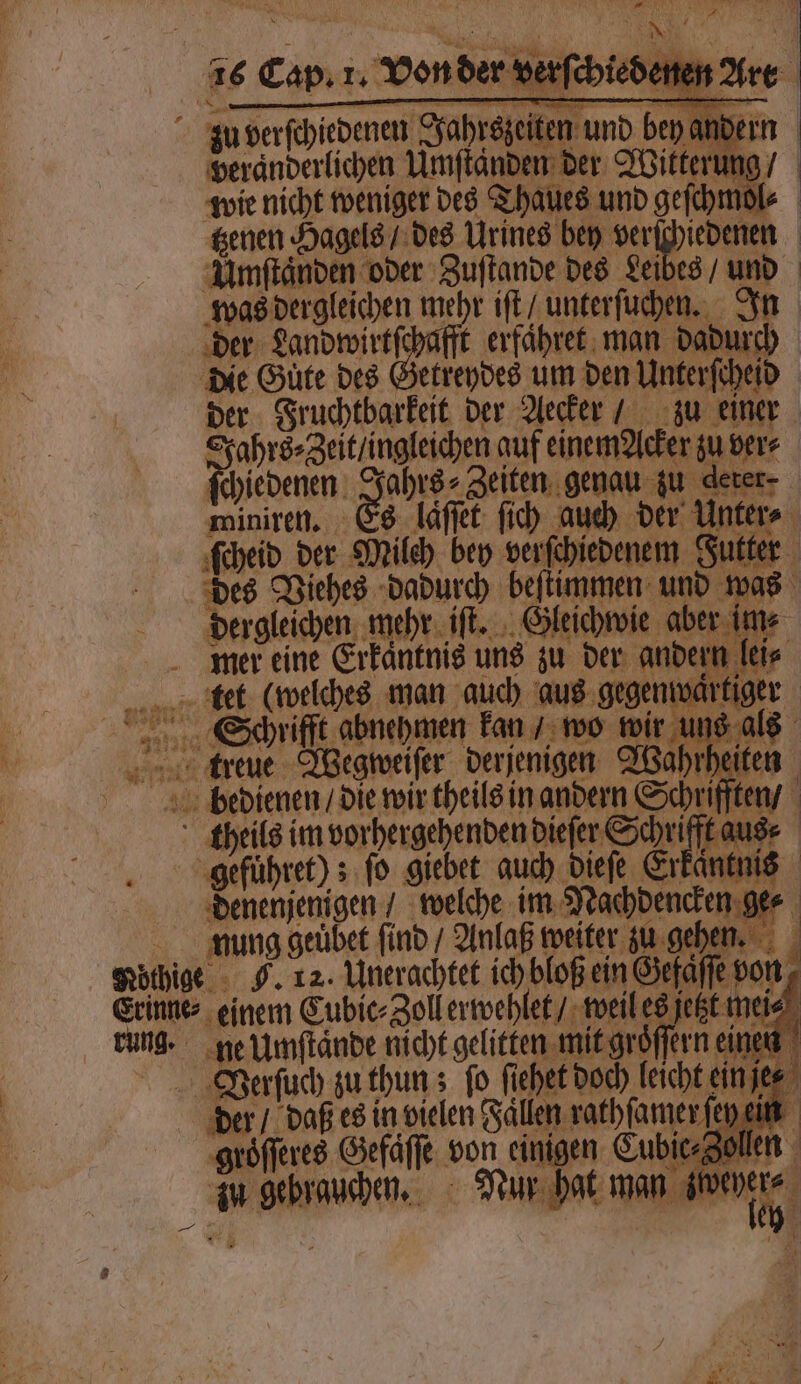 16 Cap. 1. Von der verſchiedenen Art
zu verſchiedenen Jahrszeiten und bey andern
veraͤnderlichen Umſtaͤnden der Witterung /
wie nicht weniger des Thaues und geſchmol⸗
tzenen Hagels / des Urines bey verſchiedenen
Umſtaͤnden oder Zuſtande des Leibes / und
was dergleichen mehr iſt / unterſuchen. In
der Landwirtſchafft erfaͤhret man dadurch
die Guͤte des Getreydes um den Unterſcheid
der Fruchtbarkeit der Aecker / zu einer
Jahrs⸗Zeit / ingleichen auf einem Acker zu ver⸗
ſchiedenen Jahrs⸗Zeiten genau zu deter-
miniren. Es laͤſſet ſich auch der Unter⸗
ſcheid der Milch bey verſchiedenem Futter
des Viehes dadurch beſtimmen und was
dergleichen mehr iſt. Gleichwie aber im⸗
mer eine Erkaͤntnis uns zu der andern lei⸗
tet (welches man auch aus gegenwaͤrtiger
Schrifft abnehmen kan / wo wir uns als
treue Wegweiſer derjenigen Wahrheiten
bedienen / die wir theils in andern Schrifften /
theils im vorhergehenden dieſer Schrifft aus⸗
gefuͤhret) ; ſo giebet auch dieſe Erkaͤntnis
denenjenigen / welche im Nachdencken ge⸗
nung geuͤbet ſind / Anlaß weiter zu gehen.
Noͤthige §. 12. Unerachtet ich bloß ein Gefaͤſſe von
Erinne⸗ einem Cubic⸗Zoll erwehlet / weil es jetzt mei⸗
rung. ne Umſtaͤnde nicht gelitten mit groͤſſern einen
Verſuch zu thun ; ſo ſiehet doch leicht ein je⸗
der / daß es in vielen Faͤllen rathſamer ſey ein
groͤſſeres Gefaͤſſe von einigen Cubic⸗Zollen
zu gebrauchen. Nur hat man zweyer⸗
ley